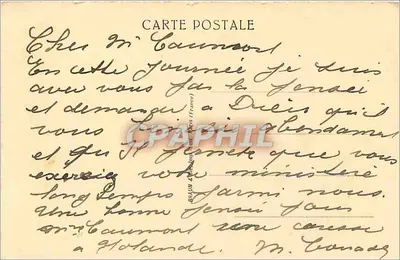 CARTE POSTALE
Cher Mr Caumont
En cette journée je suis
avec vous par la pensée
et demande à Dieu qu'il
vous abondamment
et qu'Il permette que vous
exerciez votre ministère
long temps parmi nous.
Une bonne pensée pour
Mme Caumont une causse
a Holande. M.
CPAPHIL